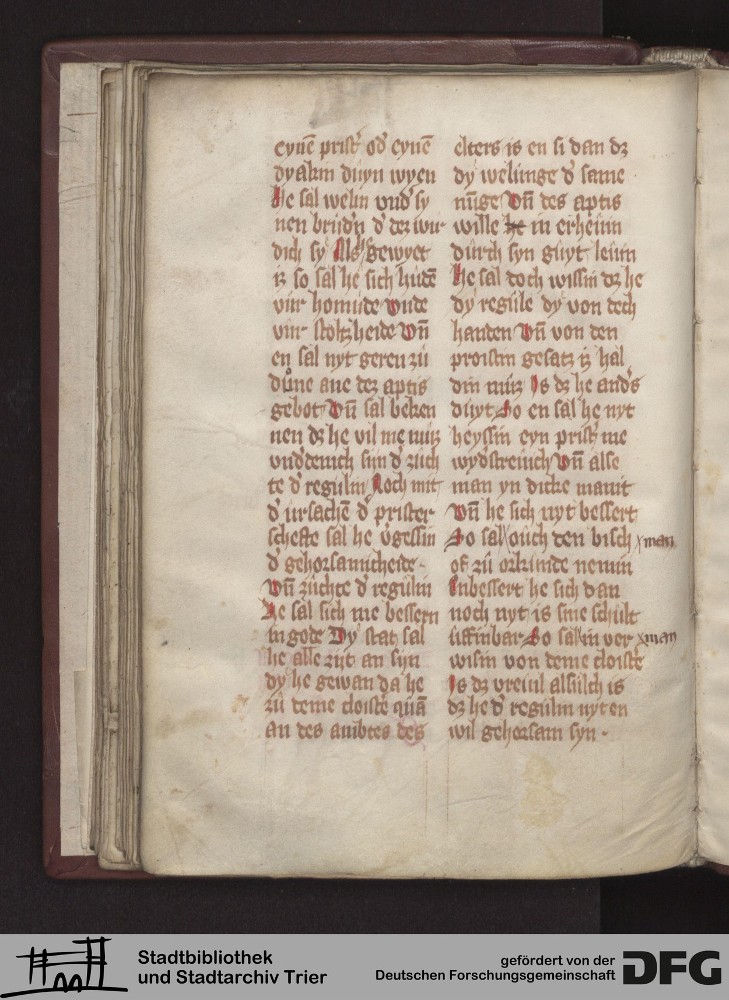 eynē prist̄ od̄ eynē
dyakin duyn wyen
he sal welin vnd̄ sy
nen brud̄n d̄ dez wir
dich sy Als gewyet
iz so sal he sich hudē
vur homude vnde
vur stoltzheide vn̄
en sal nyt geren zu
důne ane dez aptis
gebot Vn̄ sal beken
nen dz he vil me muz
vnd̄denich sin d̄ zuch
te d̄ regulin Noch mit
d̄ ursachē d̄ prister
schefte sal he v̄gessin
d̄ gehorsamicheide.
Vn̄ zuchte d̄ regulin
He sal sich me bessern
in gode Dy stat sal
he alle zijt an sijn
dy he gewan da he
zů deme cloist̄e quā
An des ambtes des
elters is en si dan dz
dy welunge d̄ same
nūge Vn̄ des aptis
wille in erheuin
durch syn guyt leuin
He sal doch wissin dz he
dy regule dy von dech
handen Vn̄ von den
proistin gesatz iz hal
din muiz Is dz he and̄s
duyt So en sal he nyt
heyssin eyn prist̄ me
wyd̄streuich Vn̄ alse
man yn dicke manit
Vn̄ he sich nyt bessert
So sal ouch den bisch x man
of zů orkunde nemin
Enbessert he sich dan
noch nyt is sine schult
uffinbar So sal in ver x man
wisin von deme cloist̄e
Is dz vreuil alsulch is
dz he d̄ regulin nyt en
wil gehorsam syn.
Stadtbibliothek
und Stadtarchiv Trier
gefördert von der
Deutschen Forschungsgemeinschaft
DFG